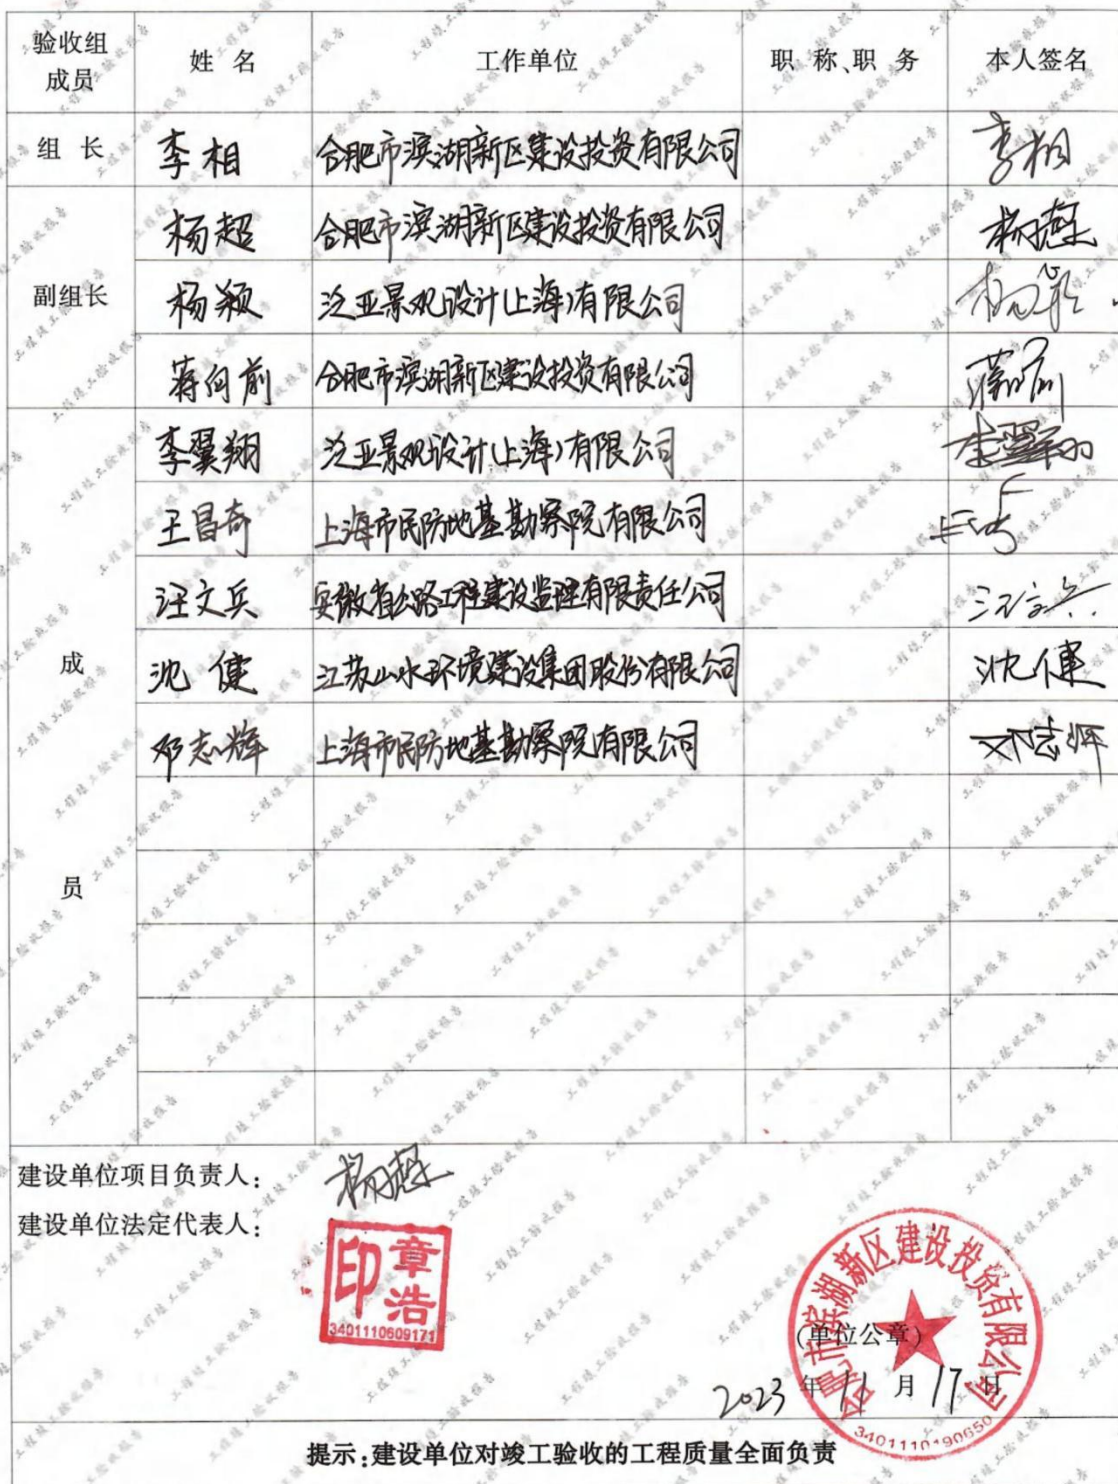 验收组成员 姓名 工作单位 职称、职务 本人签名
组长 李相 合肥市滨湖新区建设投资有限公司 李相
副组长 杨超 合肥市滨湖新区建设投资有限公司 杨超
杨颖 泛亚景观设计(上海)有限公司 杨颖
蒋向前 合肥市滨湖新区建设投资有限公司
成员 李翼翔 泛亚景观设计(上海)有限公司 李翼翔
王昌奇 上海市民防地基勘察院有限公司
汪文兵 安徽省公路工程建设监理有限责任公司 汪文兵
沈健 江苏山水环境建设集团股份有限公司 沈健
邓志辉 上海市民防地基勘察院有限公司 邓志辉
建设单位项目负责人: 杨超
建设单位法定代表人:
章浩印
3401110609171
合肥市滨湖新区建设投资有限公司
(单位公章)
2023年11月17日
3401110190650
提示:建设单位对竣工验收的工程质量全面负责
工程竣工验收报告